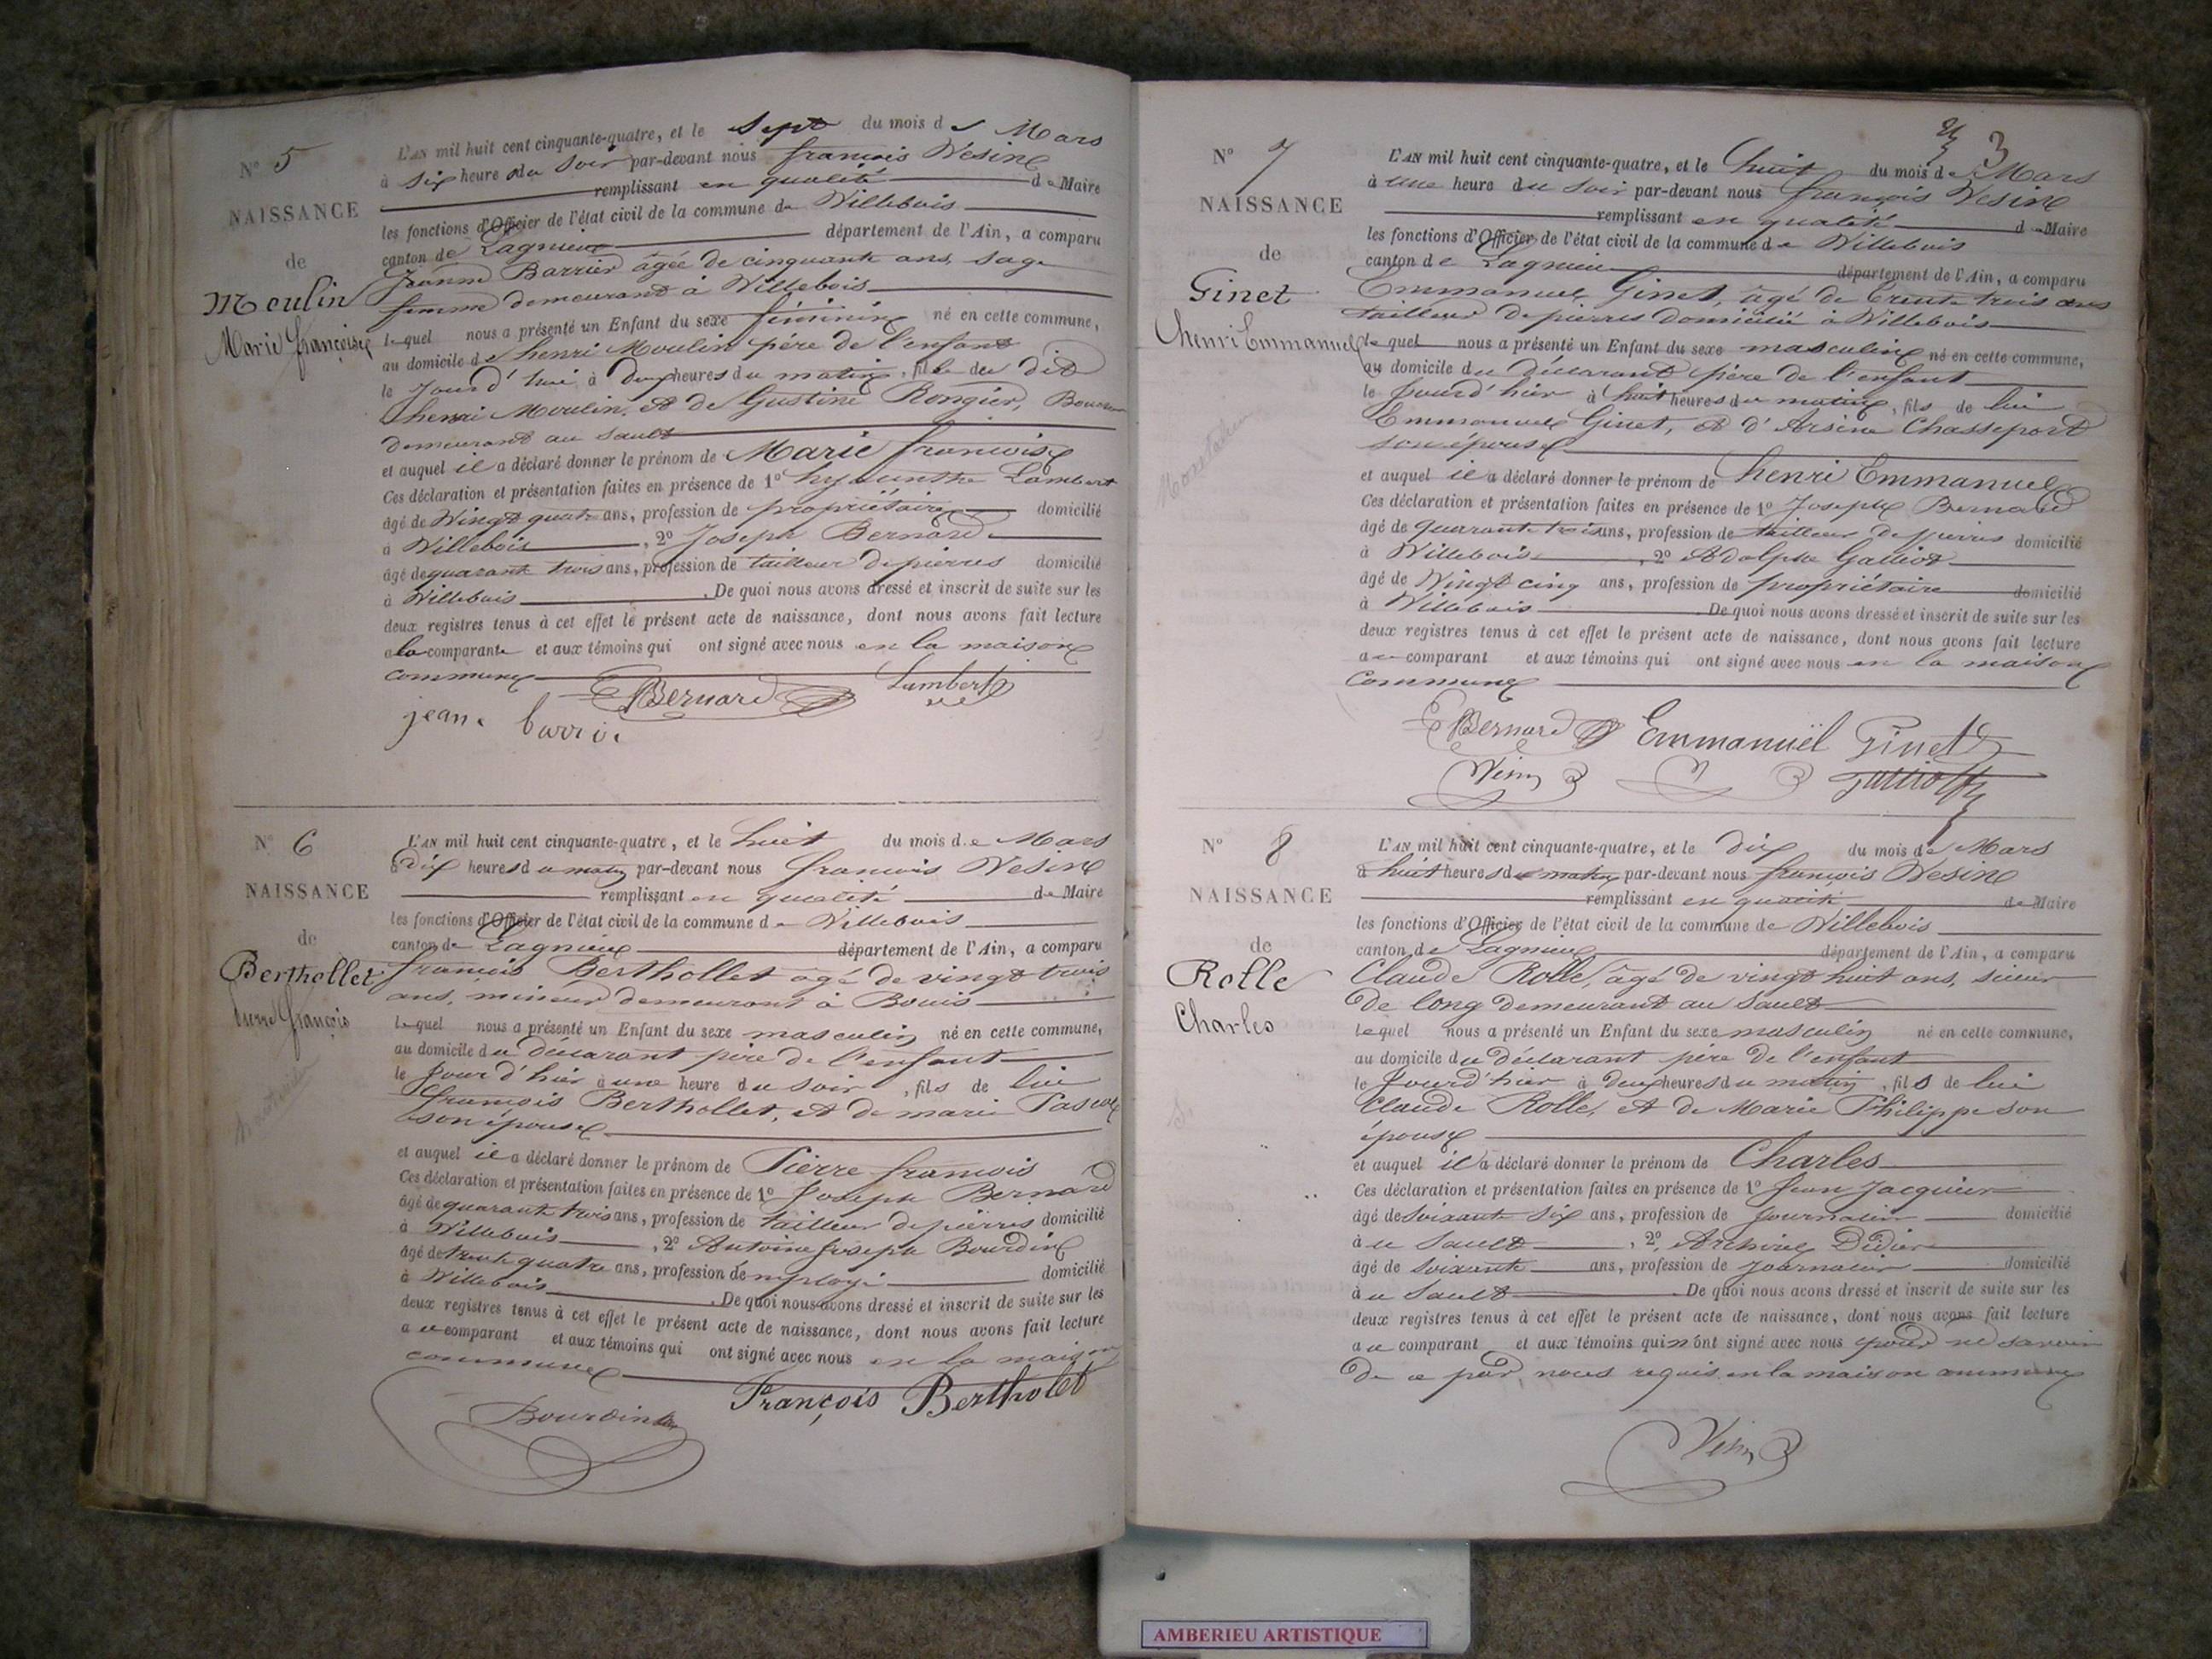 N° 5
NAISSANCE
de
Moulin
Marie françoise
L'AN mil huit cent cinquante-quatre, et le sept du mois de Mars
à six heure du soir par-devant nous françois Vesin
remplissant en qualité de Maire
les fonctions d'Officier de l'état civil de la commune de Villebois
canton de Lagnieu département de l'Ain, a comparu
Jeanne Barrier âgée de cinquante ans, sage
femme demeurant à Villebois
lequel nous a présenté un Enfant du sexe féminin né en cette commune,
au domicile de henri Moulin père de l'enfant
le Jourd'hui à deux heures du matin, fille du dit
henri Moulin, et de Gustine Rongier,
demeurant au Sault
et auquel il a déclaré donner le prénom de Marie françoise
Ces déclaration et présentation faites en présence de 1° hyacinthe Lambert
âgé de Vingt quatre ans, profession de propriétaire domicilié
à Villebois, 2° Joseph Bernard
âgé de quarante trois ans, profession de tailleur de pierres domicilié
à Villebois. De quoi nous avons dressé et inscrit de suite sur les
deux registres tenus à cet effet le présent acte de naissance, dont nous avons fait lecture
a la comparante et aux témoins qui ont signé avec nous en la maison
commune
Bernard Lambert
jeane barrie
N° 6
NAISSANCE
de
Berthollet
Pierre françois
L'AN mil huit cent cinquante-quatre, et le huit du mois de Mars
à dix heures du matin par-devant nous françois Vesin
remplissant en qualité de Maire
les fonctions d'Officier de l'état civil de la commune de Villebois
canton de Lagnieu département de l'Ain, a comparu
françois Berthollet agé de vingt trois
ans, mineur demeurant à Bouis
lequel nous a présenté un Enfant du sexe masculin né en cette commune,
au domicile du déclarant père de l'enfant
le Jourd'hier à une heure du soir, fils de lui
françois Berthollet, et de marie Pascal
son épouse
et auquel il a déclaré donner le prénom de Pierre françois
Ces déclaration et présentation faites en présence de 1° Joseph Bernard
âgé de quarante trois ans, profession de tailleur de pierres domicilié
à Villebois, 2° Antoine Joseph Bourdin
âgé de trente quatre ans, profession d'employé domicilié
à Villebois. De quoi nous avons dressé et inscrit de suite sur les
deux registres tenus à cet effet le présent acte de naissance, dont nous avons fait lecture
au comparant et aux témoins qui ont signé avec nous en la maison
commune
François Bertholet
Bourdin
3
N° 7
NAISSANCE
de
Ginet
henri Emmanuel
L'AN mil huit cent cinquante-quatre, et le huit du mois de Mars
à une heure du soir par-devant nous françois Vesin
remplissant en qualité de Maire
les fonctions d'Officier de l'état civil de la commune de Villebois
canton de Lagnieu département de l'Ain, a comparu
Emmanuel Ginet, âgé de trente trois ans
tailleur de pierres domicilié à Villebois
lequel nous a présenté un Enfant du sexe masculin né en cette commune,
au domicile du déclarant père de l'enfant
le Jourd'hier à huit heures du matin, fils de lui
Emmanuel Ginet, et d'Arsine Chasseport
son épouse
et auquel il a déclaré donner le prénom de henri Emmanuel
Ces déclaration et présentation faites en présence de 1° Joseph Bernard
âgé de quarante trois ans, profession de tailleur de pierres domicilié
à Villebois, 2° Adolphe Galliot
âgé de Vingt cinq ans, profession de propriétaire domicilié
à Villebois. De quoi nous avons dressé et inscrit de suite sur les
deux registres tenus à cet effet le présent acte de naissance, dont nous avons fait lecture
au comparant et aux témoins qui ont signé avec nous en la maison
commune
Bernard Emmanuël Ginet
Vesin Galliot
N° 8
NAISSANCE
de
Rolle
Charles
L'AN mil huit cent cinquante-quatre, et le dix du mois de Mars
à huit heures du matin par-devant nous françois Vesin
remplissant en qualité de Maire
les fonctions d'Officier de l'état civil de la commune de Villebois
canton de Lagnieu département de l'Ain, a comparu
Claude Rolle, âgé de vingt huit ans, sieur
de long demeurant au Sault
lequel nous a présenté un Enfant du sexe masculin né en cette commune,
au domicile du déclarant père de l'enfant
le Jourd'hier à deux heures du matin, fils de lui
Claude Rolle, et de Marie Philippe son
épouse
et auquel il a déclaré donner le prénom de Charles
Ces déclaration et présentation faites en présence de 1° Jean Jacquier
âgé de soixante six ans, profession de journalier domicilié
à u Sault, 2° Didier
âgé de soixante ans, profession de journalier domicilié
à u Sault. De quoi nous avons dressé et inscrit de suite sur les
deux registres tenus à cet effet le présent acte de naissance, dont nous avons fait lecture
au comparant et aux témoins qui n'ont signé avec nous pour ne savoir
de ce par nous requis en la maison commune
Vesin
AMBERIEU ARTISTIQUE